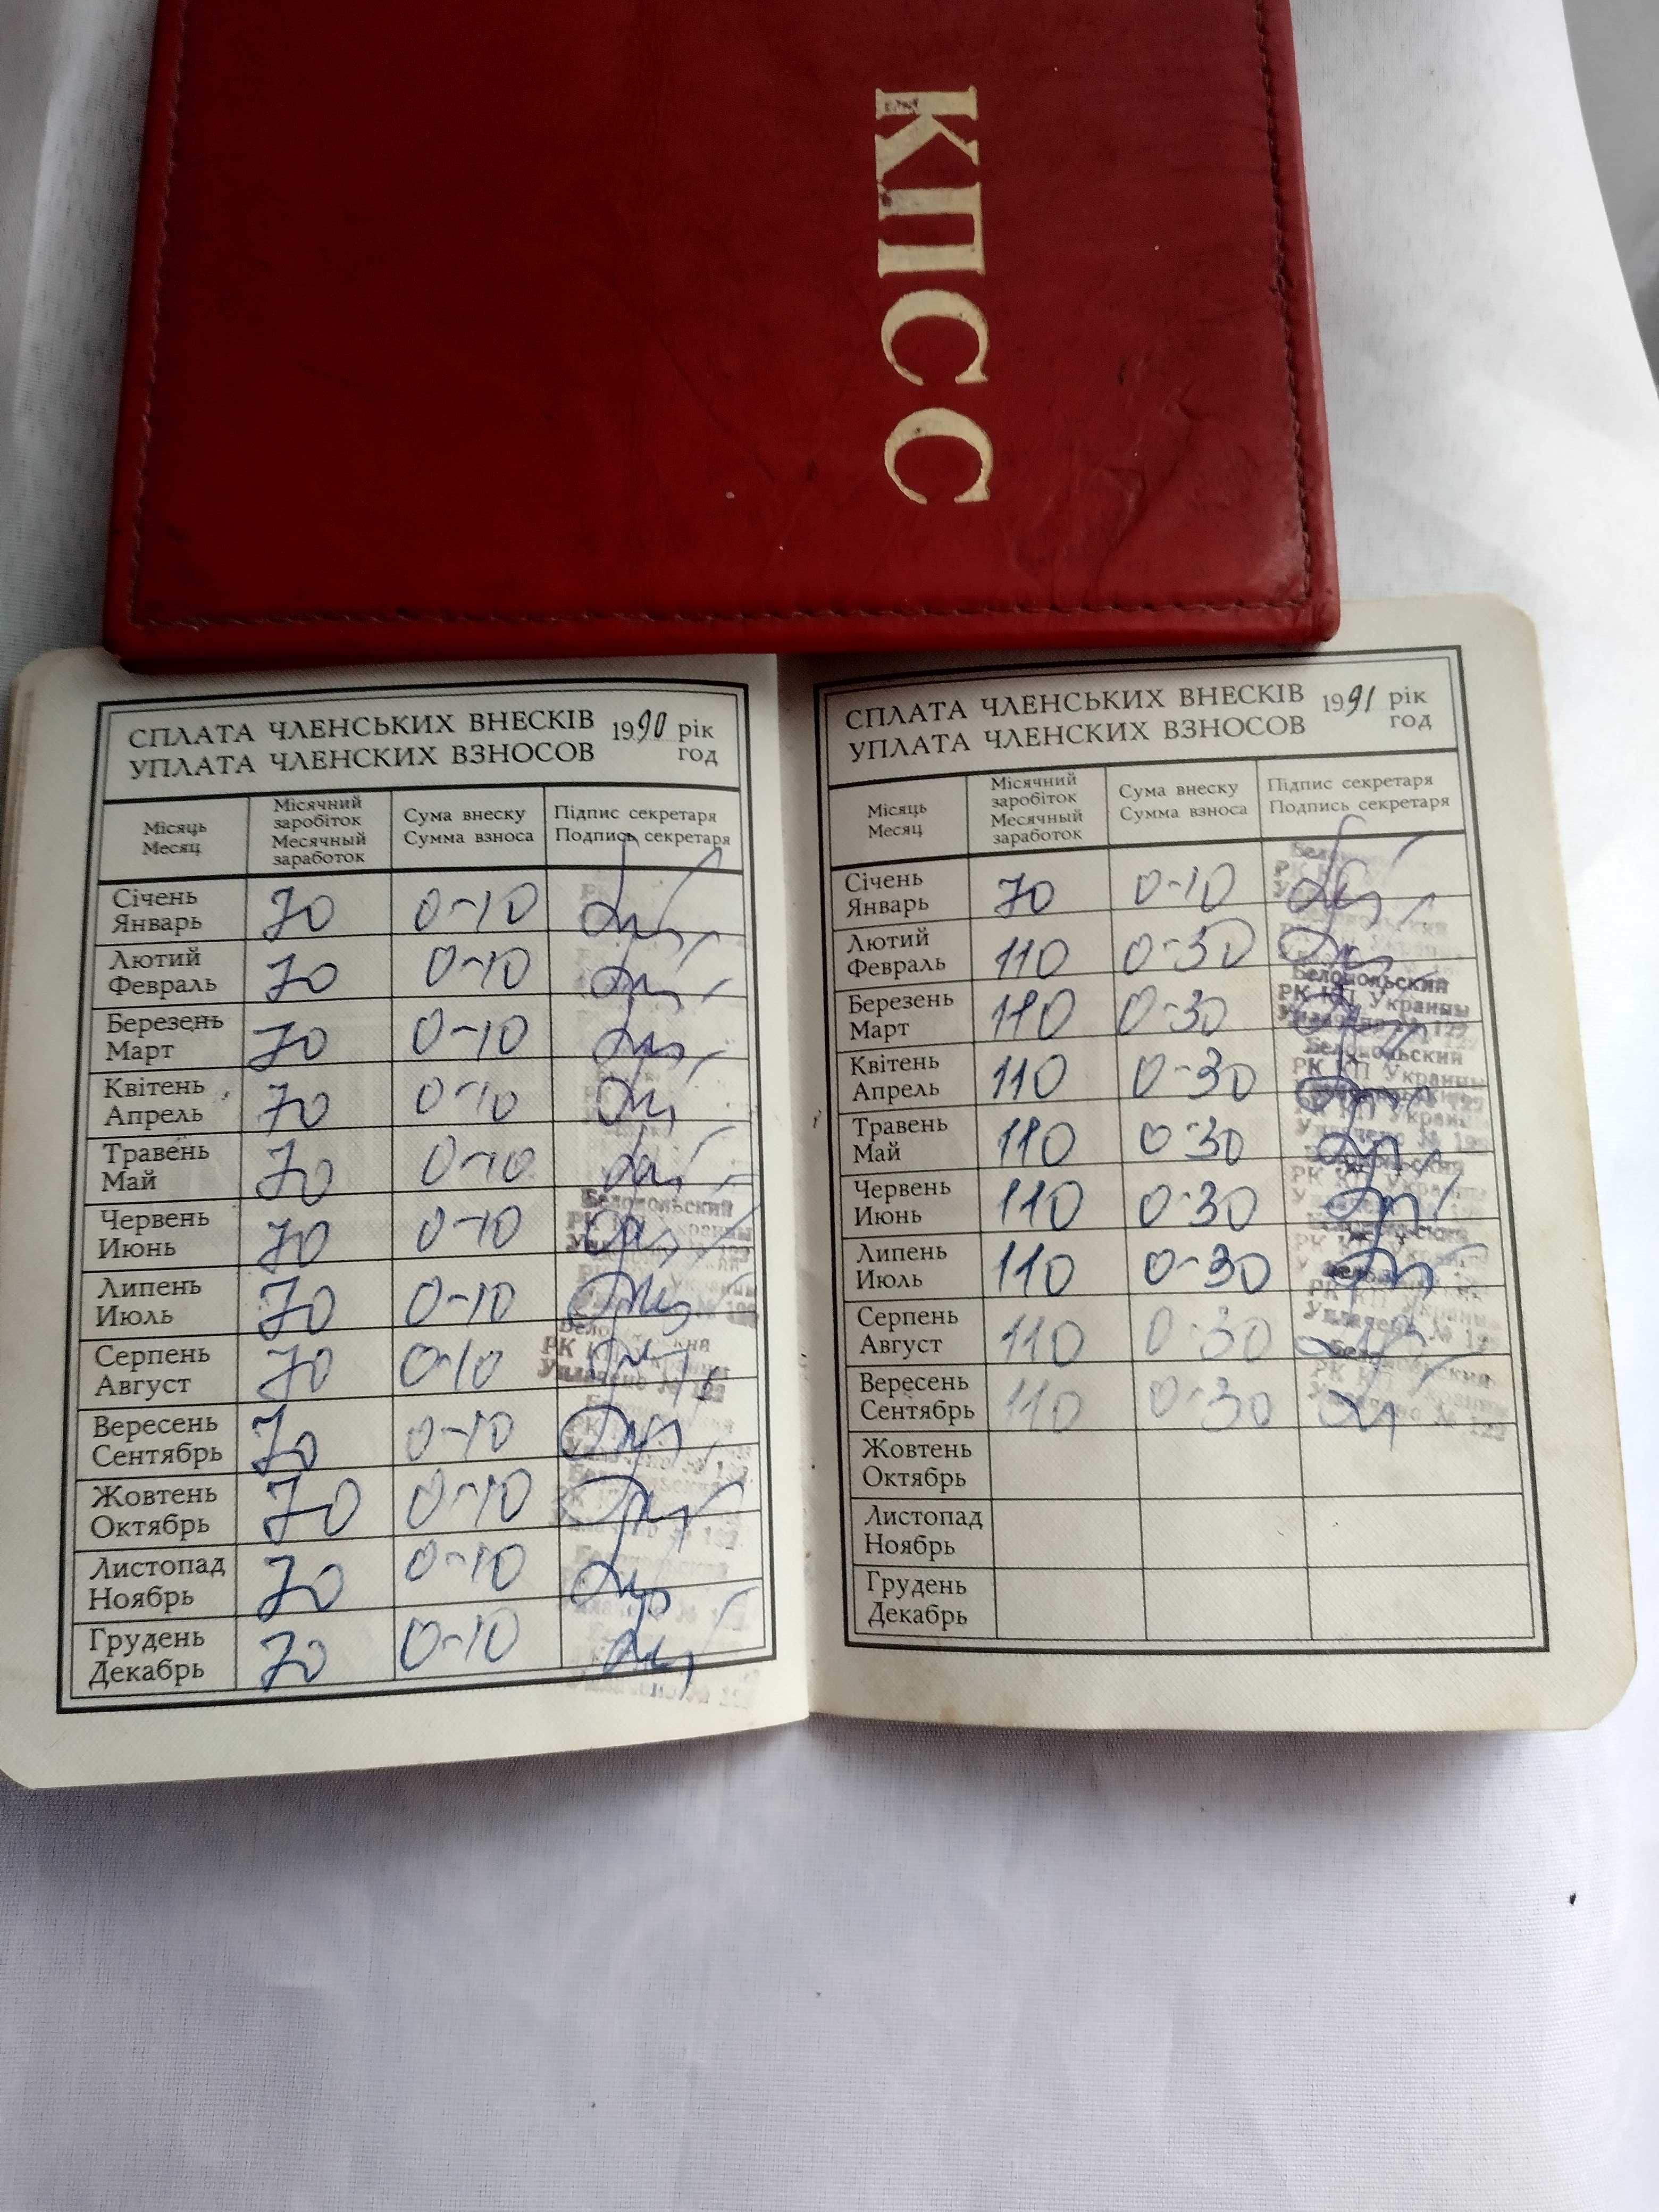 КПСС
СПЛАТА ЧЛЕНСЬКИХ ВНЕСКІВ 1990 рік
УПЛАТА ЧЛЕНСКИХ ВЗНОСОВ год
Місяць
Месяц
Місячний
заробіток
Месячный
заработок
Сума внеску
Сумма взноса
Підпис секретаря
Подпись секретаря
Січень
Январь 70 0-10
Лютий
Февраль 70 0-10
Березень
Март 70 0-10
Квітень
Апрель 70 0-10
Травень
Май 70 0-10
Червень
Июнь 70 0-10
Липень
Июль 70 0-10
Серпень
Август 70 0-10
Вересень
Сентябрь 70 0-10
Жовтень
Октябрь 70 0-10
Листопад
Ноябрь 70 0-10
Грудень
Декабрь 70 0-10
СПЛАТА ЧЛЕНСЬКИХ ВНЕСКІВ 1991 рік
УПЛАТА ЧЛЕНСКИХ ВЗНОСОВ год
Місяць
Месяц
Місячний
заробіток
Месячный
заработок
Сума внеску
Сумма взноса
Підпис секретаря
Подпись секретаря
Січень
Январь 70 0-10
Лютий
Февраль 110 0-30
Березень
Март 110 0-30
Беловольский
РК КП Украины
Квітень
Апрель 110 0-30
Беловольский
РК КП Украины
Травень
Май 110 0-30
Червень
Июнь 110 0-30
Липень
Июль 110 0-30
Серпень
Август 110 0-30
Вересень
Сентябрь 110 0-30
Жовтень
Октябрь
Листопад
Ноябрь
Грудень
Декабрь